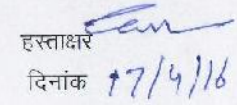 हस्ताक्षर
दिनांक 17/4/16